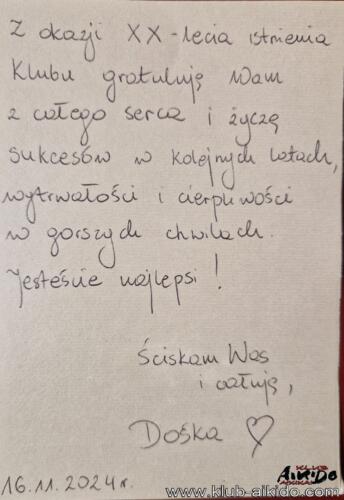 Z okazji XX-lecia istnienia
Klubu gratuluję Wam
z całego serca i życzę
sukcesów w kolejnych latach,
wytrwałości i cierpliwości
w gorszych chwilach.
Jesteście najlepsi!
Ściskam Was
i całuję,
Dośka ♡
KLUB
AIKIDO
16.11.2024r.
www.klub-aikido.com